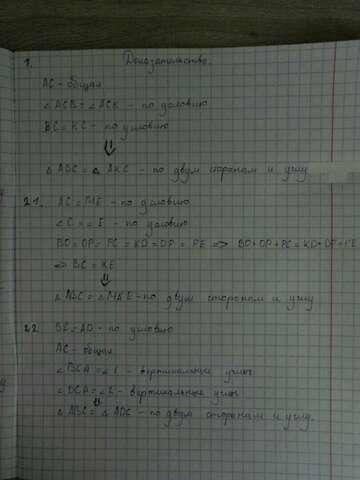 1. Доказательство.
AC - общая
∠ACB = ∠ACK - по условию
BC = KC - по условию
⇓
△ ABC = △ AKC - по двум сторонам и углу
2.1. AC = ME - по условию
∠C = ∠E - по условию
BO = OP = PC = KD = DP = PE => BO + OP + PC = KD + DP + PE
=> BC = KE
⇓
△ABC = △MKE - по двум сторонам и углу
2.2. BC = AD - по условию
AC - общая
∠BCA = ∠1 - вертикальные углы
∠DCA = ∠2 - вертикальные углы
⇓
△ABC = △ ADC - по двум сторонам и углу.